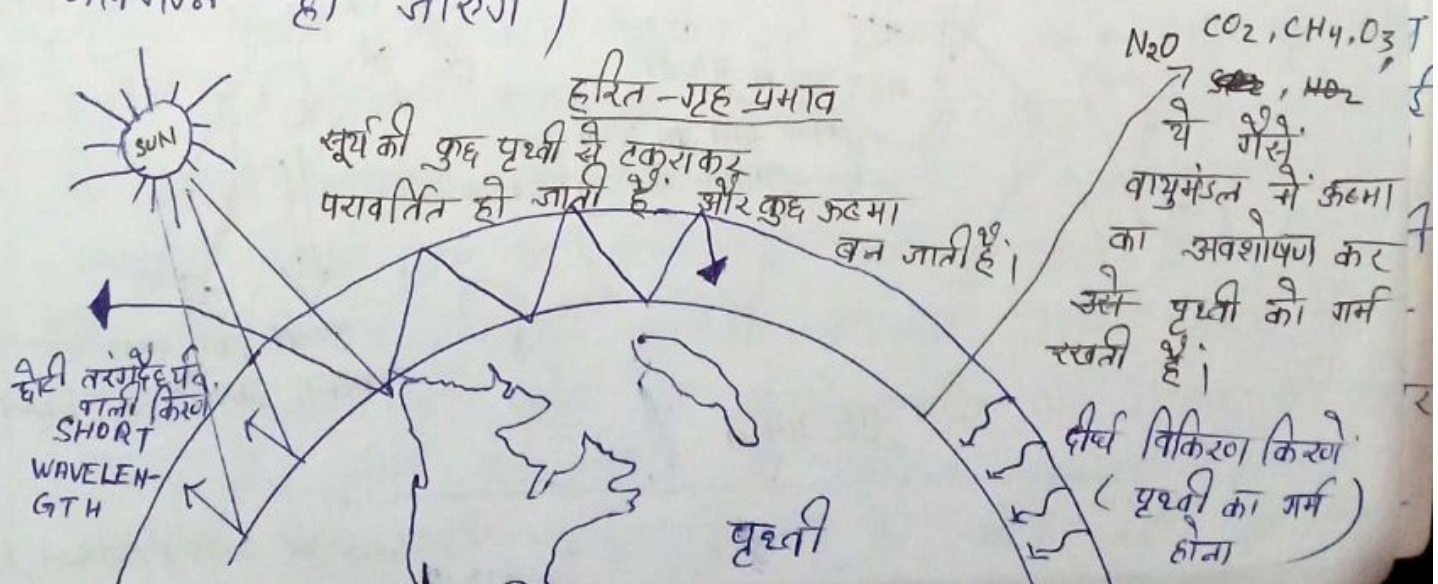 हो जाएगा )
हरित-गृह प्रभाव
सूर्य की कुछ पृथ्वी से टकराकर
परावर्तित हो जाती हैं और कुछ ऊष्मा
बन जाती है।
SUN
N₂O CO₂, CH₄, O₃,
ये गैसें
वायुमंडल में ऊष्मा
का अवशोषण कर
उसे पृथ्वी को गर्म
रखती हैं।
छोटी तरंगदैर्घ्य
वाली किरणें
SHORT
WAVELEN-
GTH
दीर्घ विकिरण किरणे
( पृथ्वी का गर्म )
होना
पृथ्वी